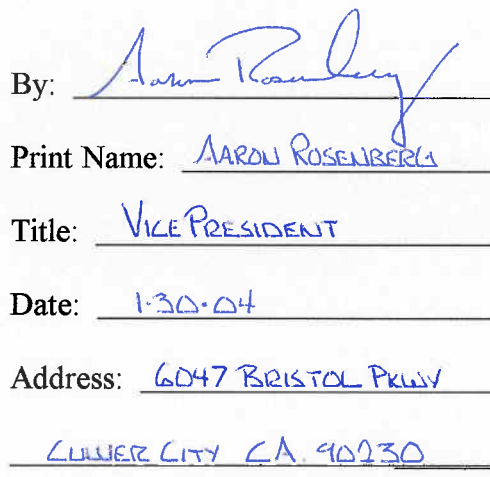 By: Aaron Rosenberg
Print Name: AARON ROSENBERG
Title: VICE PRESIDENT
Date: 1-30-04
Address: 6047 BRISTOL PKWY
CULVER CITY CA 90230